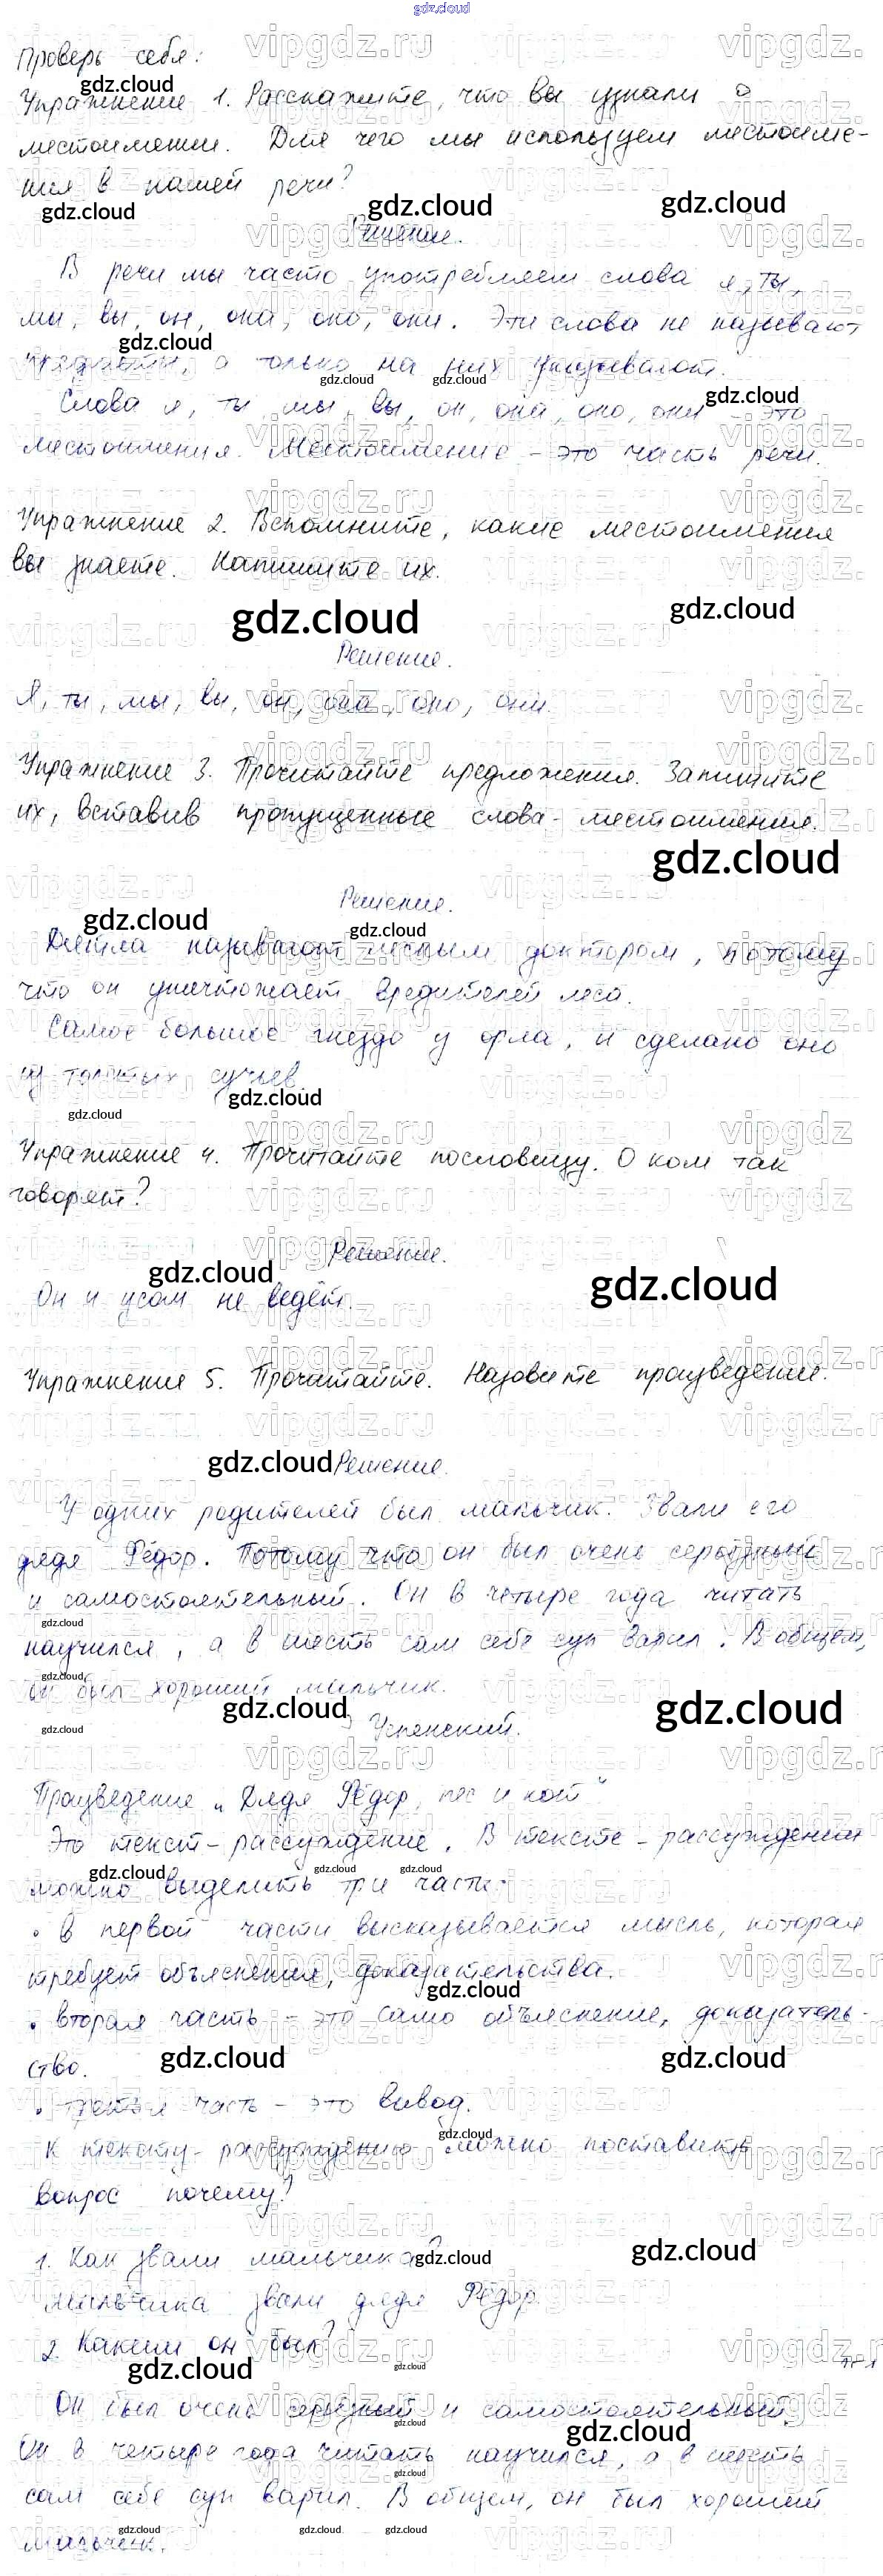 gdz.cloud
Проверь себя:
Упражнение 1. Расскажите, что вы узнали о
местоимении. Для чего мы используем местоиме-
ния в нашей речи?
Решение.
В речи мы часто употребляем слова я, ты,
мы, вы, он, она, оно, они. Эти слова не называют
предметы, а только на них указывают.
Слова я, ты, мы, вы, он, она, оно, они – это
местоимения. Местоимение – это часть речи.
Упражнение 2. Вспомните, какие местоимения
вы знаете. Напишите их.
Решение.
Я, ты, мы, вы, он, она, оно, они.
Упражнение 3. Прочитайте предложения. Запишите
их, вставив пропущенные слова - местоимения.
Решение.
Дятла называют лесным доктором, потому
что он уничтожает вредителей леса.
Самое большое гнездо у орла, и сделано оно
из толстых сучьев.
Упражнение 4. Прочитайте пословицу. О ком так
говорят?
Решение.
Он и усом не ведёт.
Упражнение 5. Прочитайте. Назовите произведение.
Решение.
У одних родителей был мальчик. Звали его
дядя Фёдор. Потому что он был очень серьёзный
и самостоятельный. Он в четыре года читать
научился, а в шесть сам себе суп варил. В общем,
он был хороший мальчик.
Э Успенский.
Произведение „Дядя Фёдор, пёс и кот"
Это текст – рассуждение. В тексте – рассуждении
можно выделить три части:
• в первой части высказывается мысль, которая
требует объяснения, доказательства.
• вторая часть – это само объяснение, доказатель-
ство.
• третья часть – это вывод.
К тексту - рассуждению можно поставить
вопрос почему?
1. Как звали мальчика?
Мальчика звали дядя Фёдор.
2. Каким он был?
Он был очень серьёзный и самостоятельный.
Он в четыре года читать научился, а в шесть
сам себе суп варил. В общем, он был хороший
мальчик.